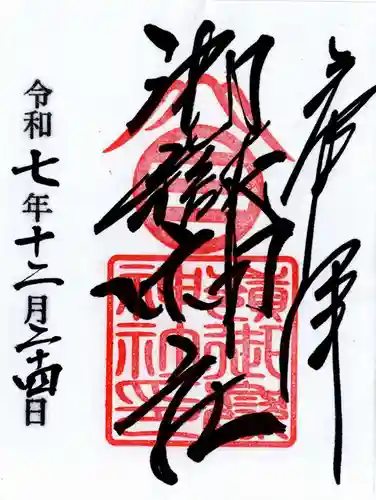 御嶽神社
令和七年十二月二十四日
御嶽
神社印